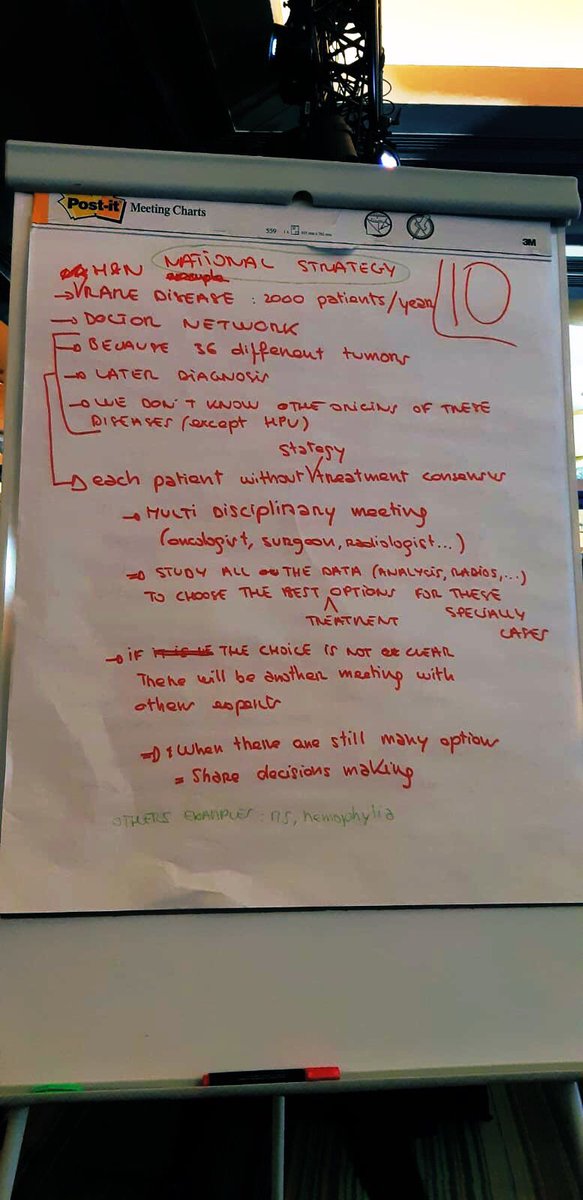 Post-it Meeting Charts
559
3M
H&N NATIONAL STRATEGY
10
→ RARE DISEASE : 2000 patients/year
→ DOCTOR NETWORK
→ BECAUSE 36 different tumors
→ LATER DIAGNOSIS
→ WE DON'T KNOW THE ORIGINS OF THESE
DISEASES (except HPV)
stategy
→ each patient without treatment consensus
→ MULTI DISCIPLINARY MEETING
(oncologist, surgeon, radiologist...)
⇒ STUDY ALL THE DATA (ANALYSIS, RADIOS,...)
TO CHOOSE THE BEST OPTIONS FOR THESE
TREATMENT SPECIALLY
CASES
→ IF THE CHOICE IS NOT CLEAR
There will be another meeting with
others expert
⇒ When there are still many option
= Share decisions making
OTHERS EXAMPLES : MS, hemophylia